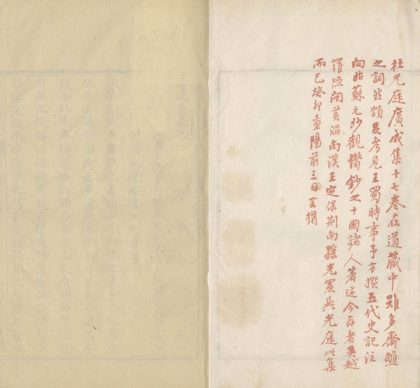 杜光庭廣成集十七卷在道藏中雖多齋醮
之詞頗足考見王蜀時事予方撰五代史記注
向姑蘇元妙觀借鈔之十國諸人著述今存者吳越
羅隱閩黃滔南漢王定保荆南孫光憲與光庭此集
而已癸卯重陽前三日芸楣